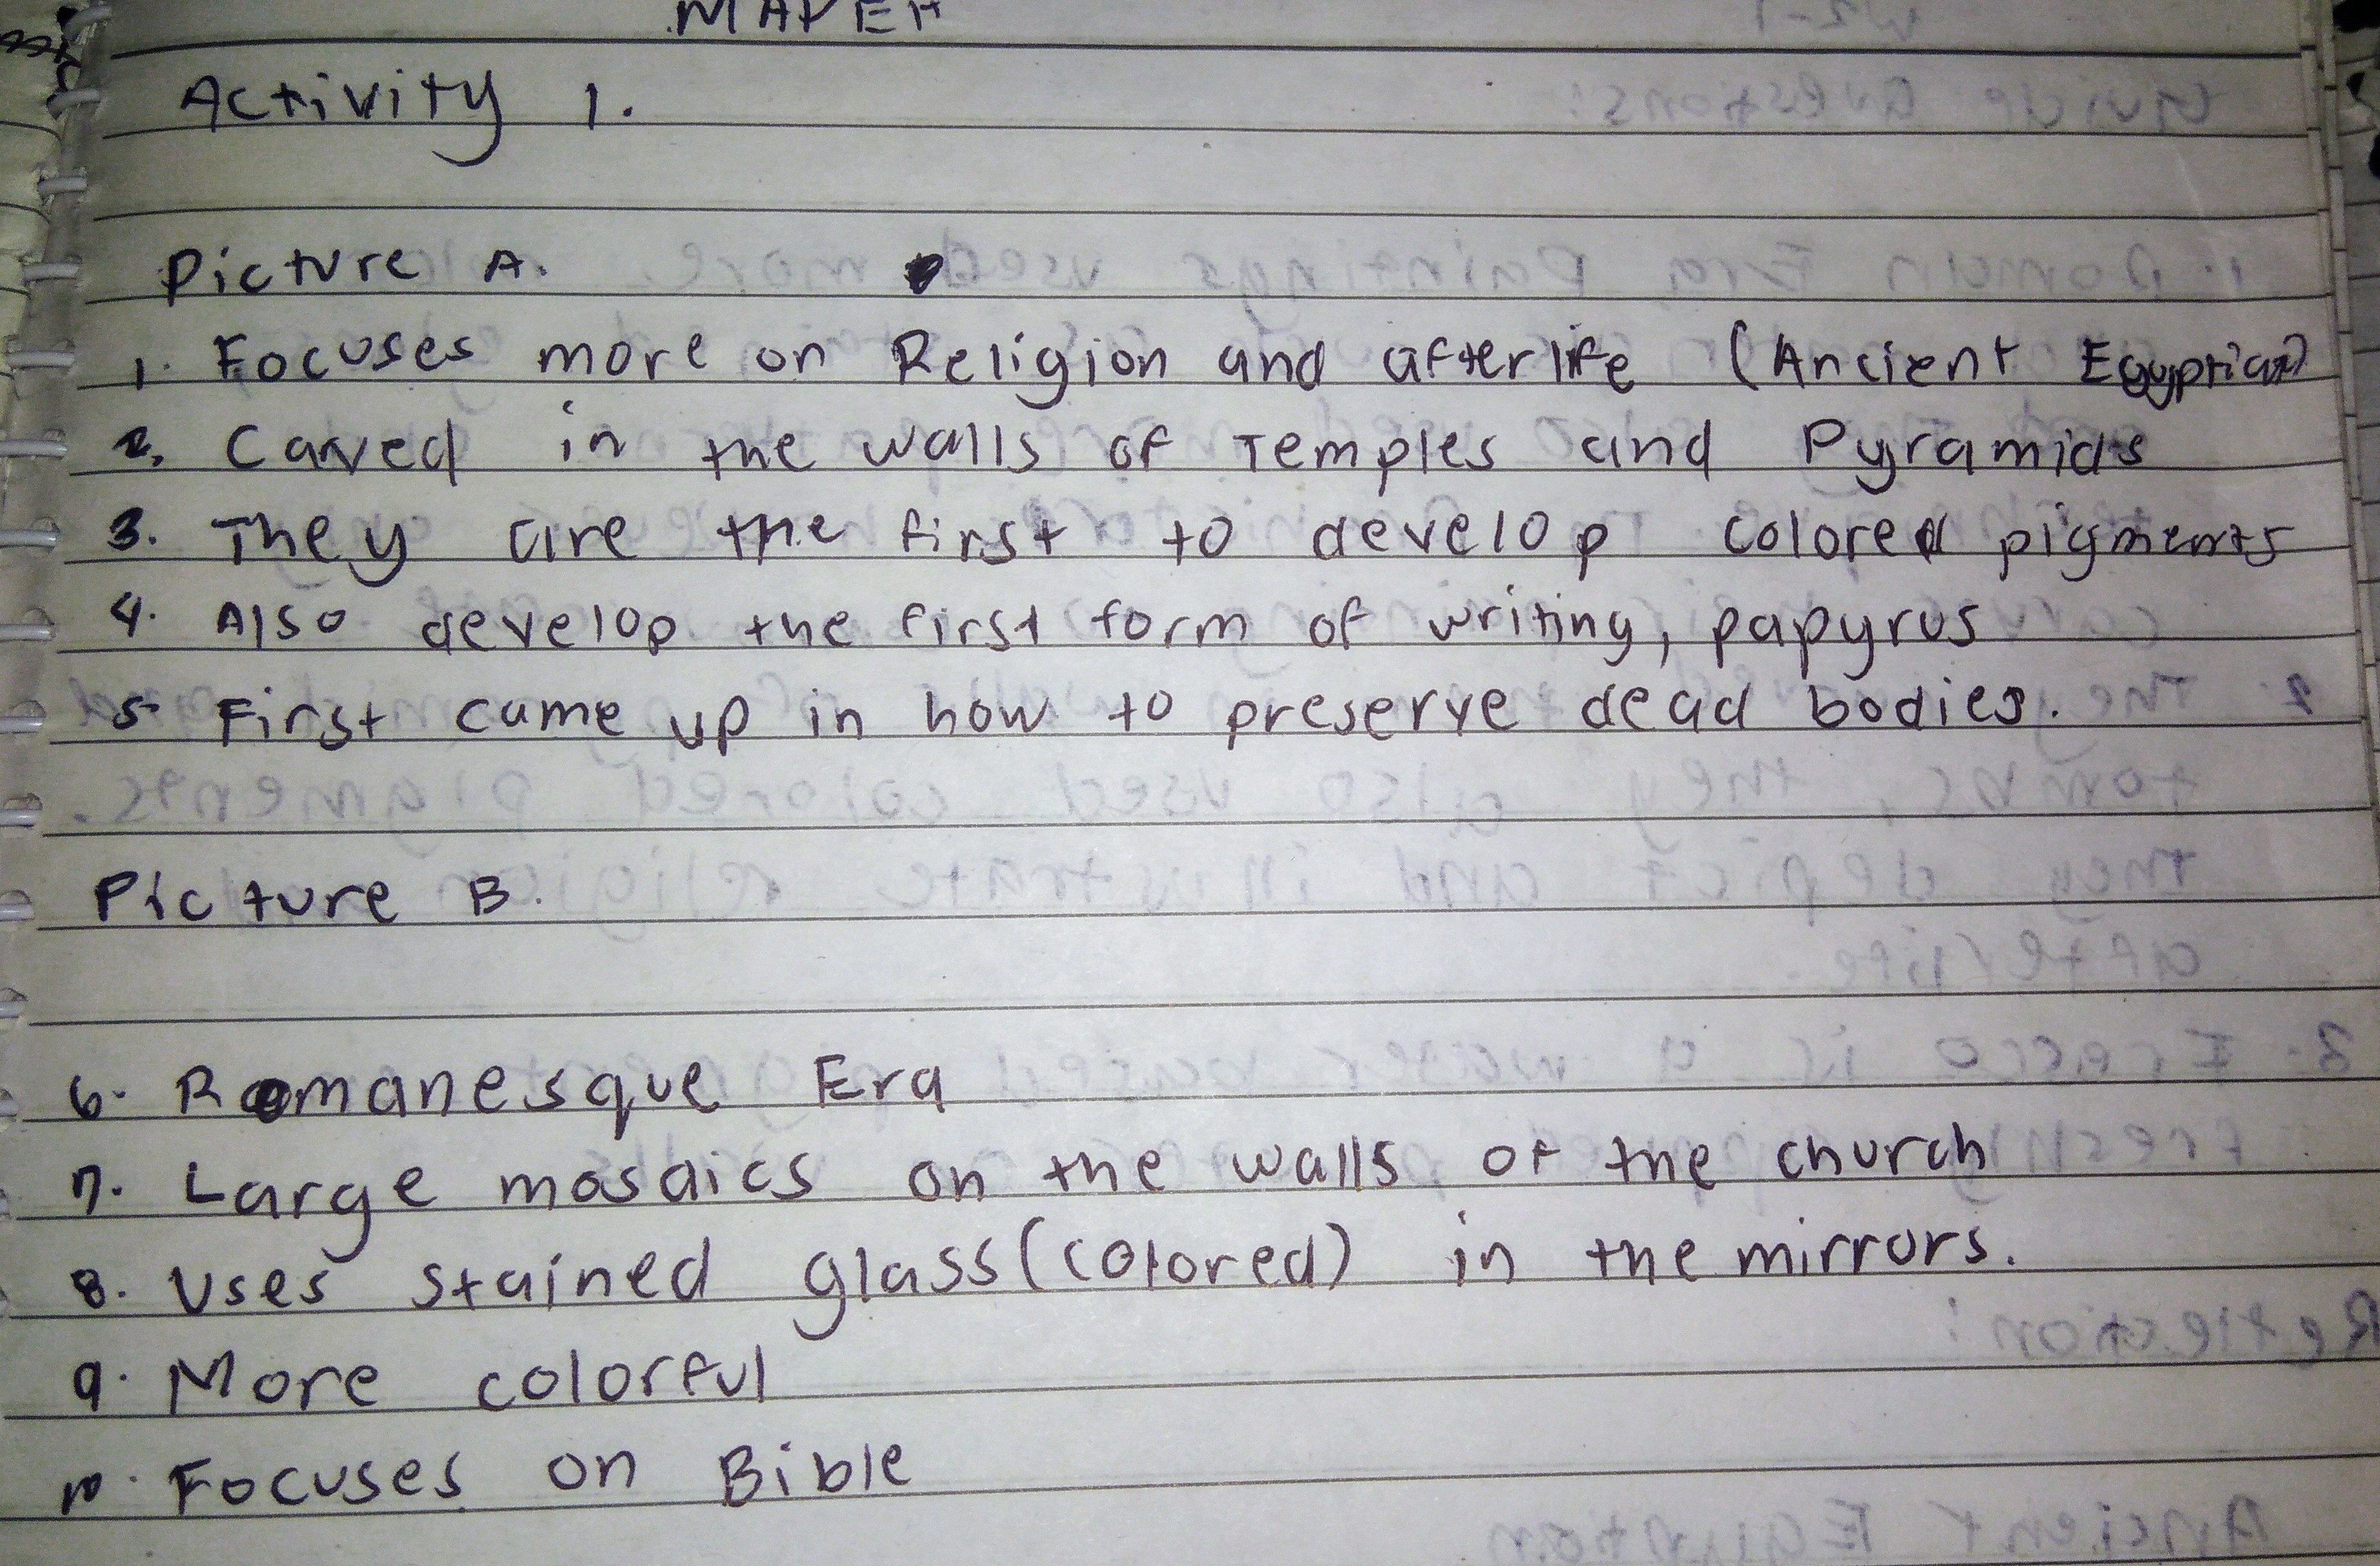 MAPEH
Activity 1.
Picture A.
1. Focuses more on Religion and afterlife (Ancient Egyptian)
2. Caved in the walls of Temples and Pyramids
3. They are the first to develop colored pigments
4. Also develop the first form of writing, papyrus
5 First came up in how to preserve dead bodies.
Picture B.
6. Romanesque Era
7. Large mosaics on the walls of the church
8. Uses stained glass (colored) in the mirrors.
9. More colorful
10. Focuses on Bible